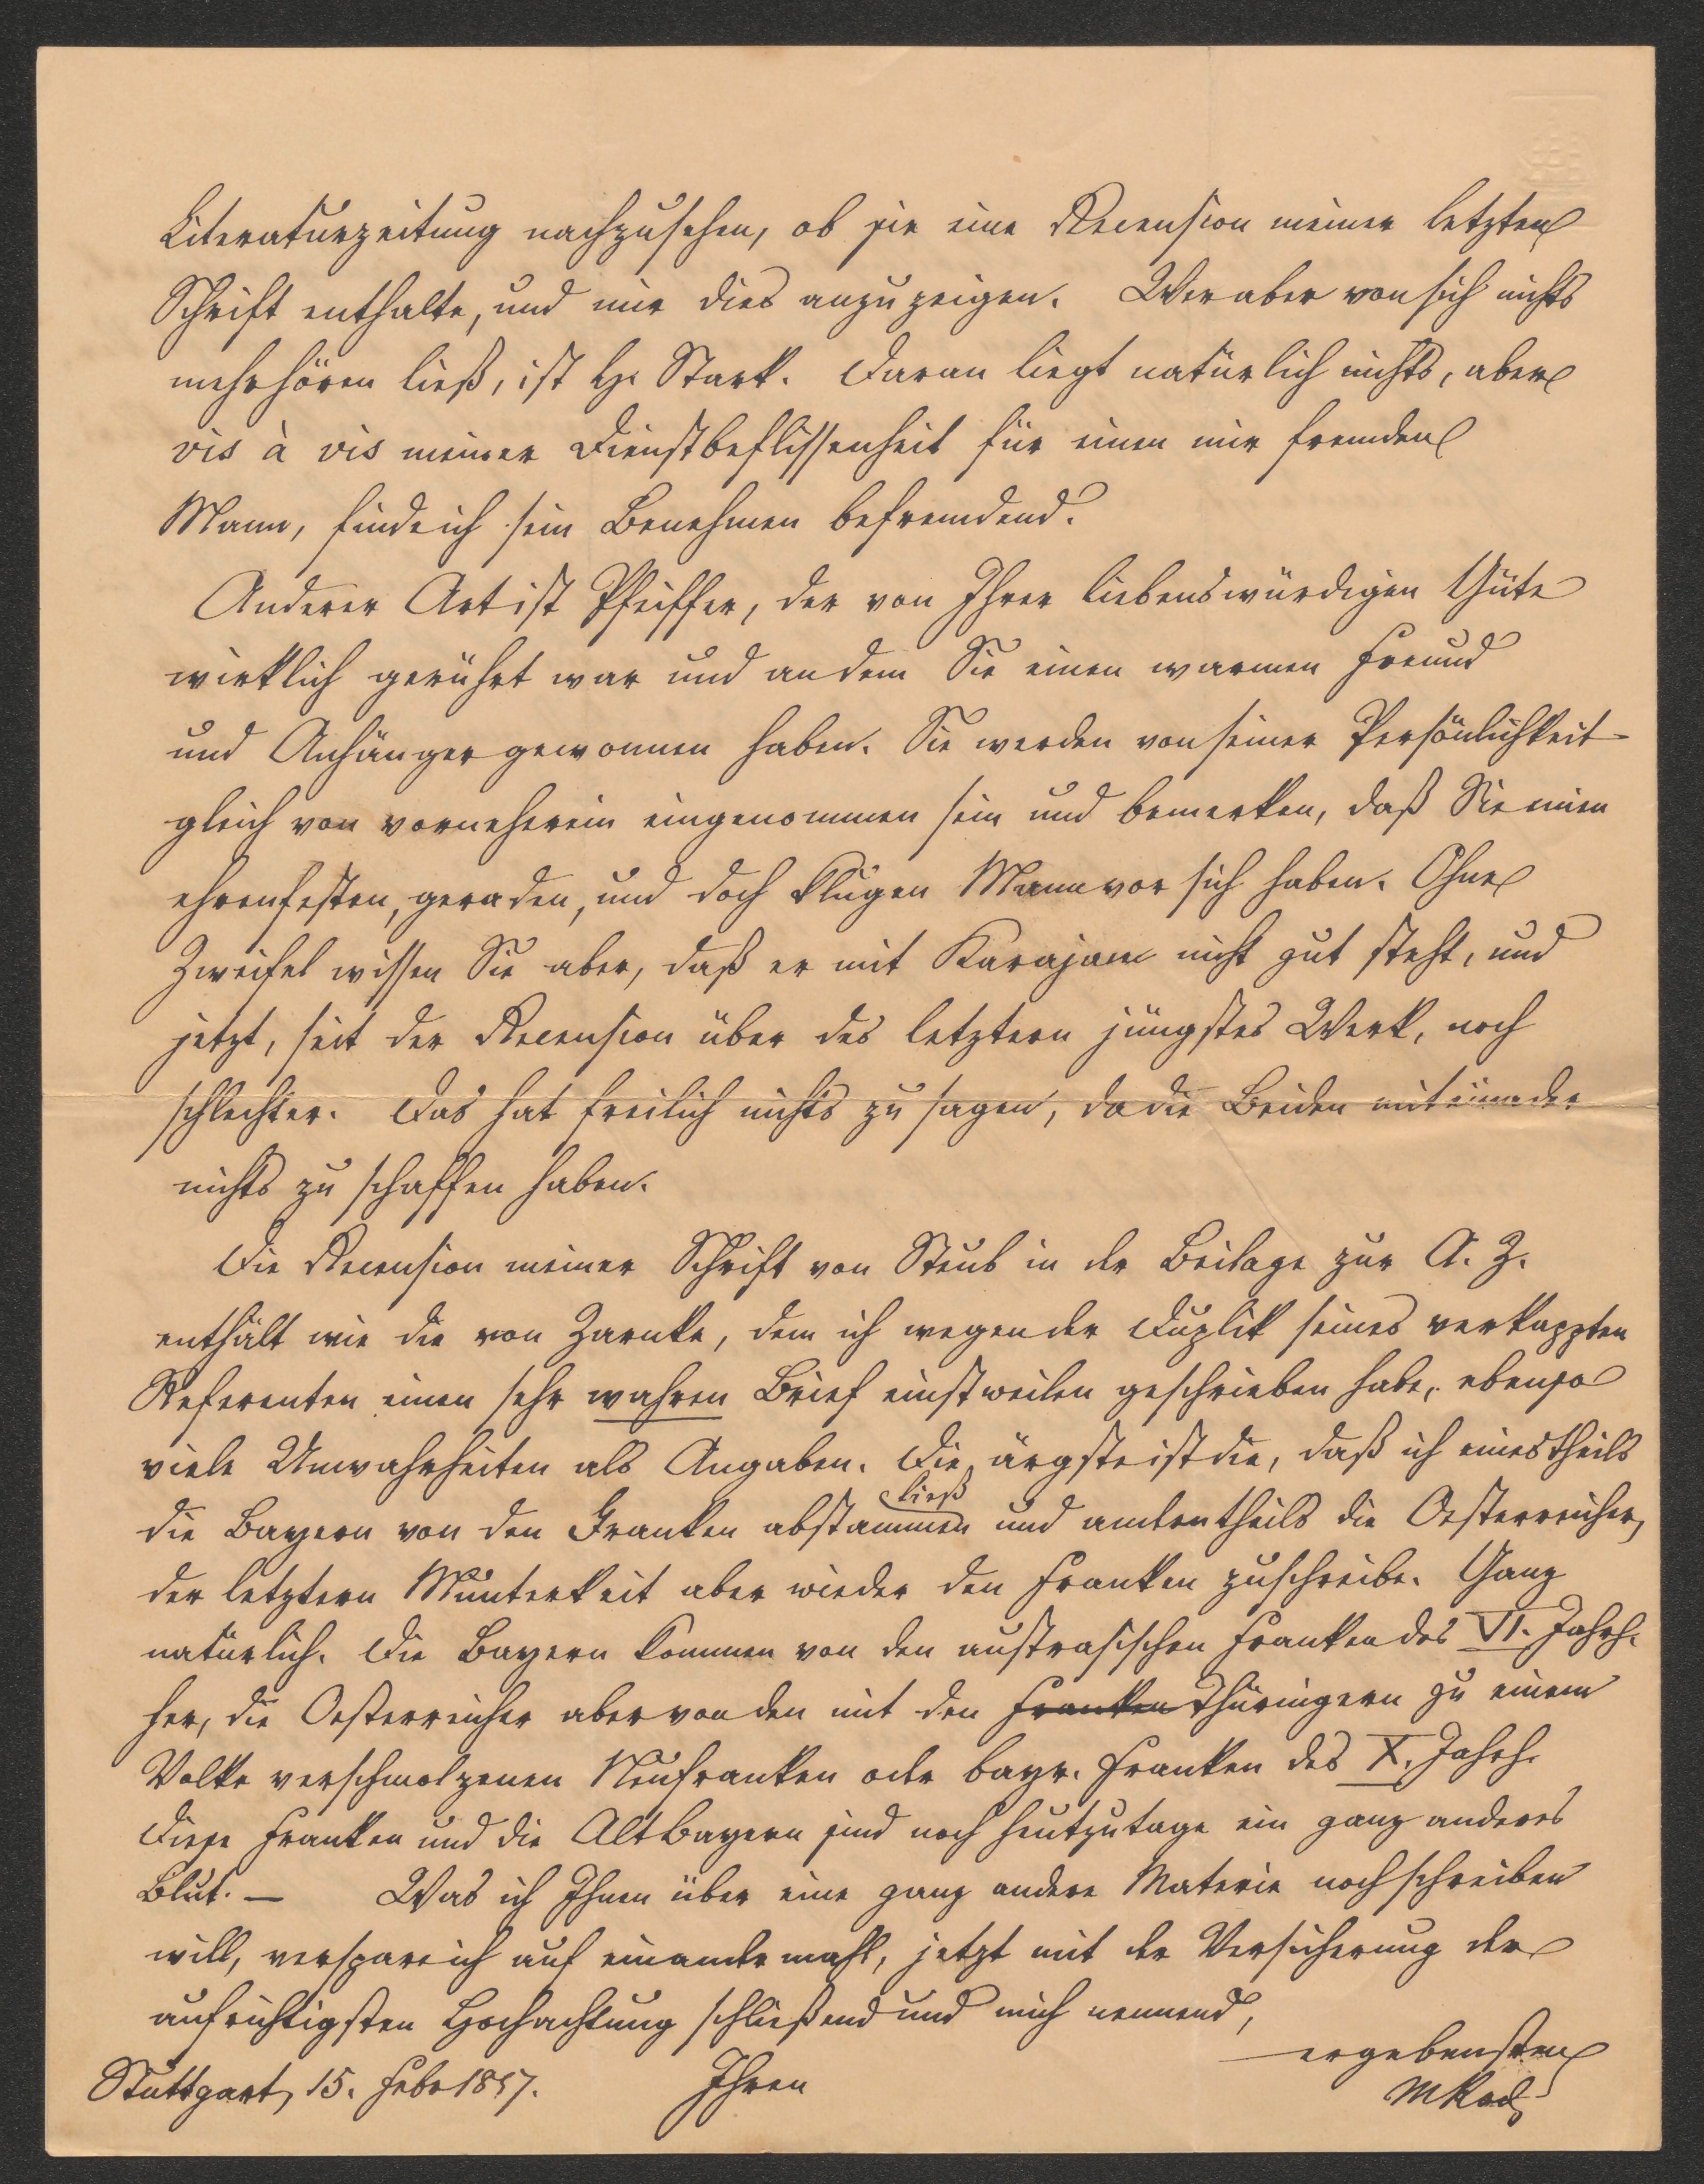 Literaturzeitung nachzusehen, ob sie eine Recension meiner letzten
Schrift enthalte, und mir dies anzuzeigen. Wer aber von sich nichts
mehr hören ließ, ist H. Stark. Daran liegt natürlich nichts, aber
vis à vis meiner Dienstbeflissenheit für einen mir fremden
Mann, finde ich sein Benehmen befremdend.
Anderer Art ist Pfeiffer, der von Ihrer liebenswürdigen Güte
wirklich gerührt war und an dem Sie einen warmen Freund
und Anhänger gewonnen haben. Sie werden von seiner Persönlichkeit
gleich von vorneherein eingenommen sein und bemerken, daß Sie einen
ehrenfesten, geraden, und doch klugen Mann vor sich haben. Ohne
Zweifel wissen Sie aber, daß er mit Karajan nicht gut steht, und
jetzt, seit der Recension über des letztern jüngstes Werk, noch
schlechter. Das hat freilich nichts zu sagen, da die Beiden miteinander
nichts zu schaffen haben.
Die Recension meiner Schrift von Steub in der Beilage zur A. Z.
enthält wie die von Zarnke, dem ich wegen der Duplik seines verkappten
Referenten einen sehr wahren Brief einstweilen geschrieben habe, ebenso
viele Unwahrheiten als Angaben. Die ärgste ist die, daß ich einestheils
die Bayern von den Franken abstammen ließ und anderntheils die Oesterreicher,
der letztern Munterkeit aber wieder den Franken zuschreibe. Ganz
natürlich. Die Bayern kommen von den austrasischen Franken des VI. Jahrh.
her, die Oesterreicher aber von den mit den Franken Thüringern zu einem
Volke verschmolzenen Neufranken oder bayr. Franken des X. Jahrh.
Diese Franken und die Altbayern sind noch heutzutage ein ganz anderes
Blut. — Was ich Ihnen über eine ganz andere Materie noch schreiben
will, verspare ich auf ein andermahl, jetzt mit der Versicherung der
aufrichtigsten Hochachtung schließend und mich nennend,
Ihren ergebensten
Stuttgart, 15. Febr 1857.